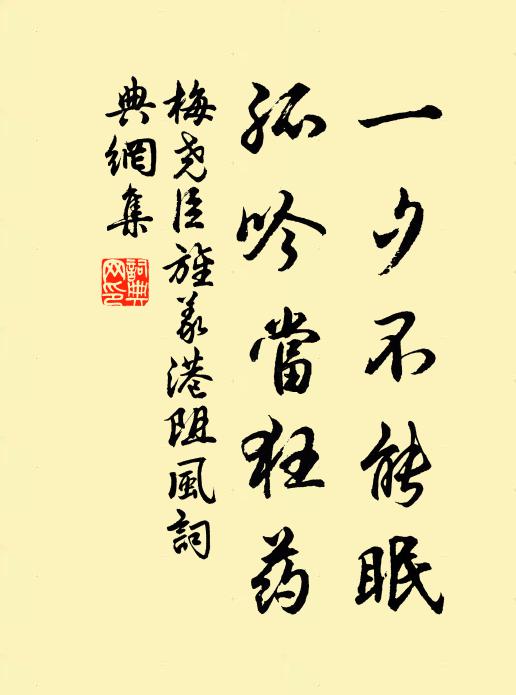 一夕不能眠
孤吟當狂药
梅尧臣旌義港阻風詞
典網集
詞典网印